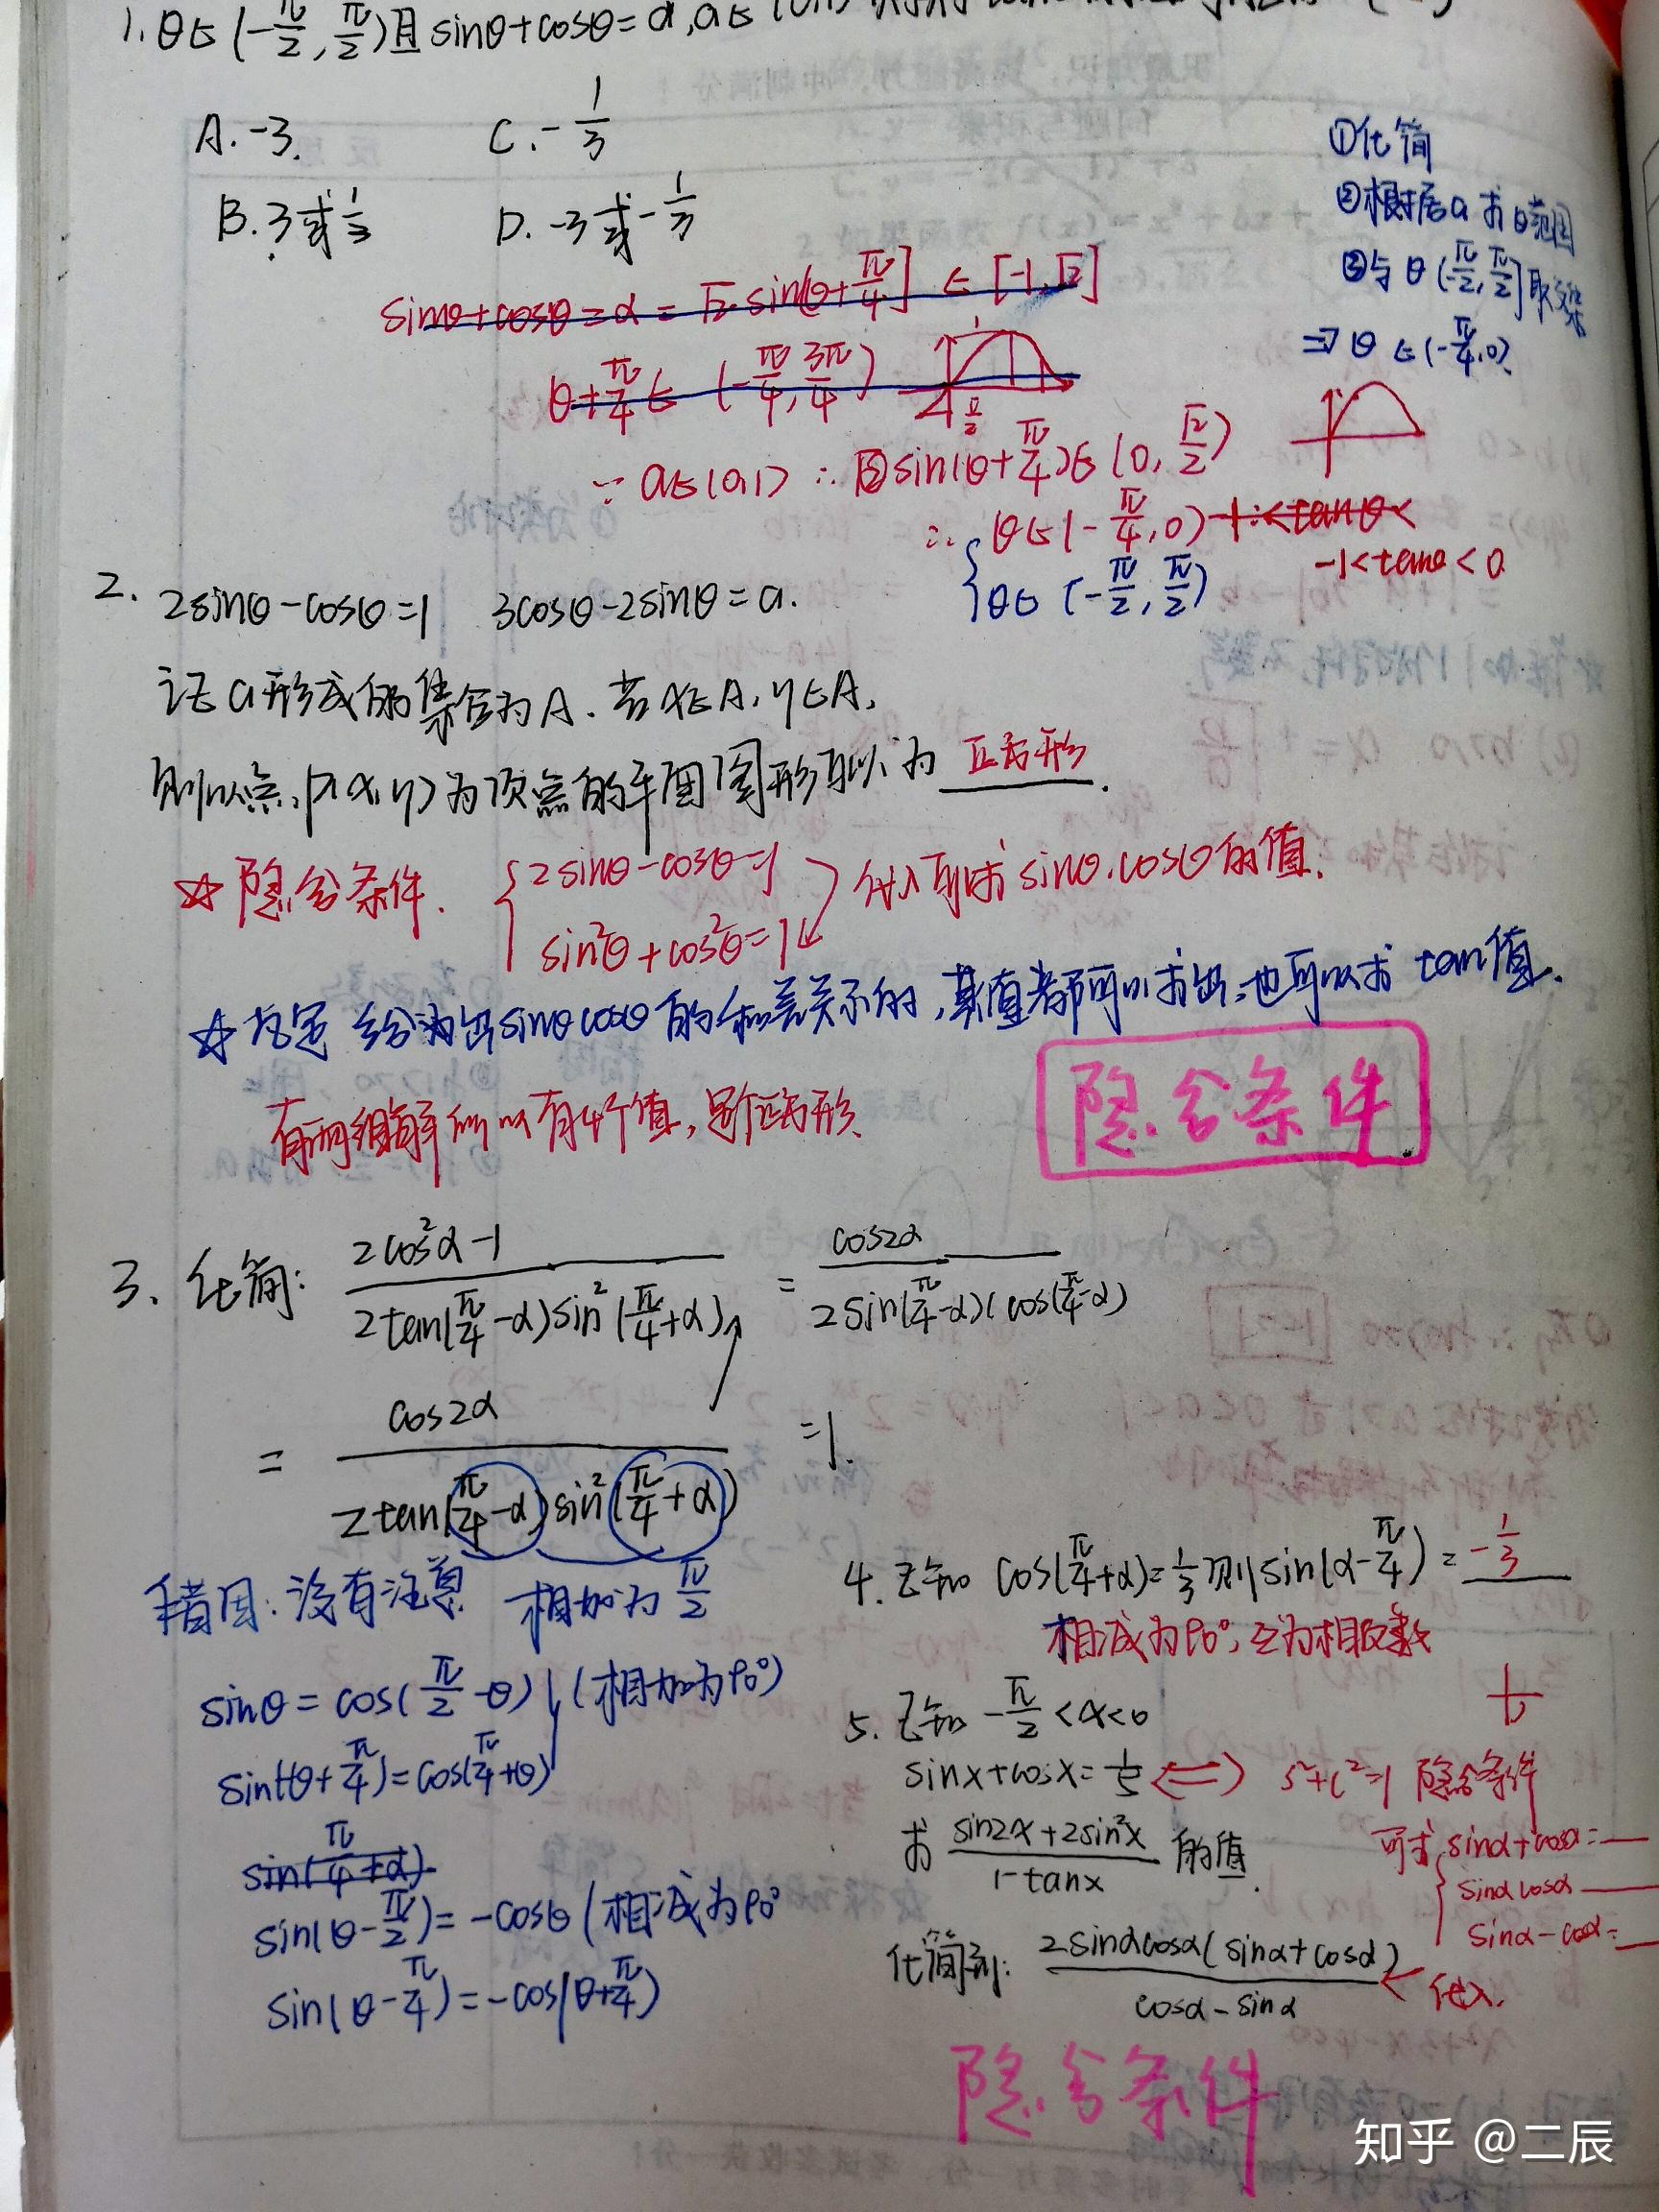 1. θ∈(-π/2, π/2)且sinθ+cosθ=a, a∈(0,1)
A. -3.
C. -1/3
B. 3或1/3
D. -3或-1/3
①化简
②根据a求θ范围
③与θ(-π/2, π/2]取交集
⇒θ∈(-π/4, 0)
sinθ+cosθ=a=√2 sin[θ+π/4]∈[-1,√2]
θ+π/4∈(-π/4, 3π/4)
∵a∈(0,1) ∴ sin(θ+π/4)∈(0, √2/2)
∴ θ∈(-π/4, 0) -1<tanθ<
θ∈(-π/2, π/2)
-1<tanθ<0
2. 2sinθ-cosθ=1 3cosθ-2sinθ=a.
记a形成的集合为A. 若x∈A, y∈A,
则以点P(x,y)为顶点的平面图形可以为 正方形.
☆隐含条件. {2sinθ-cosθ=1
sin²θ+cos²θ=1
代入可求sinθ.cosθ的值.
☆凡是给出sinθcosθ的和差关系的,其值都可以求出,也可以求tan值.
隐含条件
有两组解所以有4个值,是个正方形.
3. 化简: (2cos²α-1)/(2tan(π/4-α)sin²(π/4+α)) = cos2α/(2sin(π/4-α)(cos(π/4-α))
= cos2α/(2tan(π/4-α)sin²(π/4+α)) =1.
错因:没有注意 相加为π/2
sinθ=cos(π/2-θ) (相加为90°)
sin(-θ+π/4)=cos(π/4+θ)
sin(π/4+α)
sin(θ-π/2)=-cosθ (相减为90°
sin(θ-π/4)=-cos(θ+π/4)
4. 已知 cos(π/4+α)=1/3 则sin(α-π/4)=-1/3
相减为90°,互为相反数
5. 已知 -π/2<x<0
sinx+cosx=1/5 ⟺ s²+c²=1 隐含条件
求 (sin2x+2sin²x)/(1-tanx) 的值.
可求{sinα+cosα=
sinαcosα
sinα-cosα=
化简到: 2sinαcosα(sinα+cosα)/(cosα-sinα) ← 代入.
隐含条件
知乎 @二辰